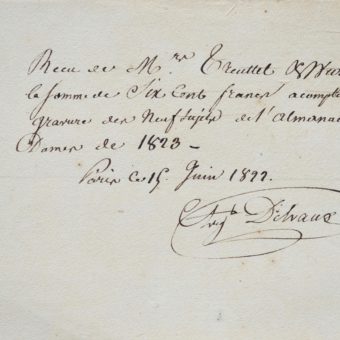 Recu de M.rs Treuttel & Wur
la somme de Six Cents francs acompte
gravure des Neuf sujets de l'almanac
Dames de 1823 –
Paris ce 15 Juin 1822.
Delvaux